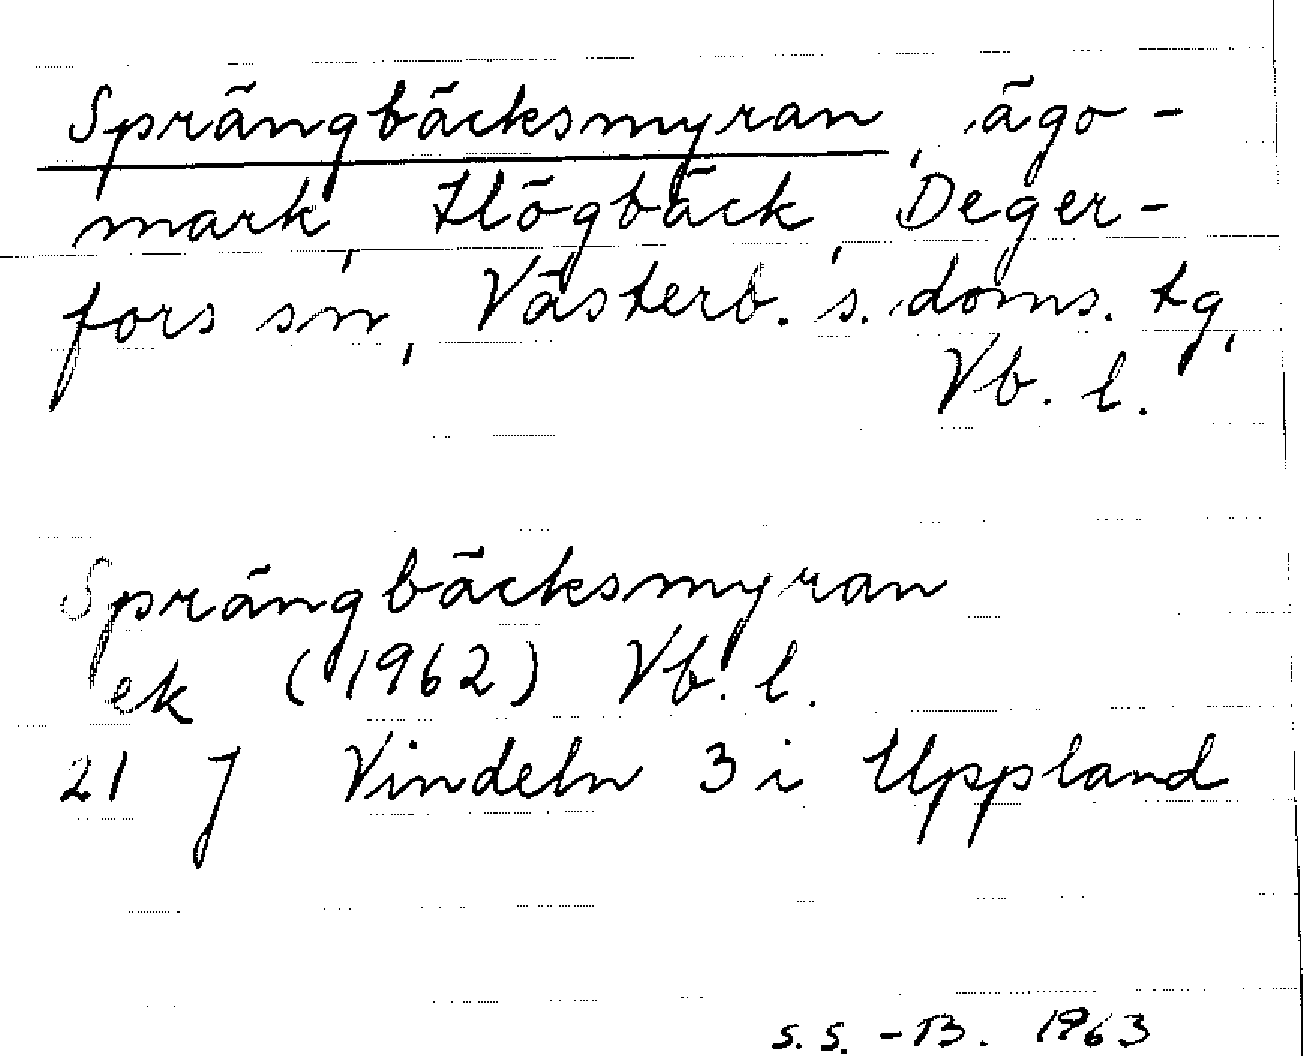 Sprängbäcksmyran, ägo-
mark, Högbäck, Deger-
fors sn, Västerb. s. doms. tg,
Vb. l.
Sprängbäcksmyran
ek (1962) Vb. l.
21 J Vindeln 3 i Uppland
S. S. - B. 1963